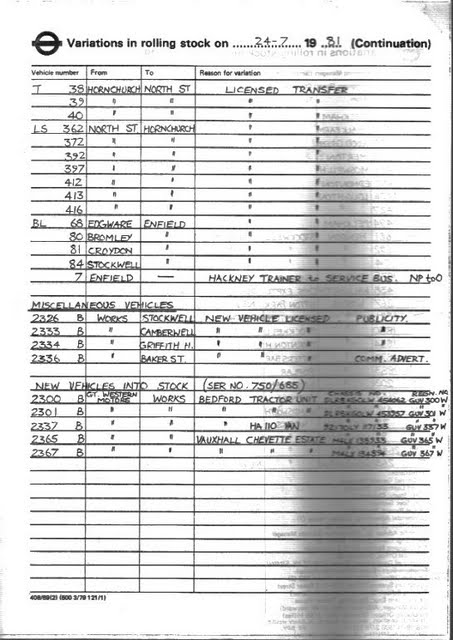 Variations in rolling stock on 24-7 1981 (Continuation)
Vehicle number From To Reason for variation
T 38 HORNCHURCH NORTH ST LICENSED TRANSFER
39 " " " "
40 " " " "
LS 362 NORTH ST. HORNCHURCH " "
372 " " " "
392 " " " "
397 " " " "
412 " " " "
413 " " " "
416 " " " "
BL 68 EDGWARE ENFIELD " "
80 BROMLEY " " "
81 CROYDON " " "
84 STOCKWELL " " "
7 ENFIELD — HACKNEY TRAINER to SERVICE BUS. NP to O
MISCELLANEOUS VEHICLES
2326 B WORKS STOCKWELL NEW VEHICLE LICENSED PUBLICITY.
2333 B " CAMBERWELL " " " "
2334 B " GRIFFITH H. " " " "
2336 B " BAKER ST. " " " COMM. ADVERT.
NEW VEHICLES INTO STOCK (SER NO. 750/685) CHASSIS NO. REGN. NO
2300 B GT. WESTERN MOTORS WORKS BEDFORD TRACTOR UNIT GUV 300 W
2301 B " " " " " GUV 301 W
2337 B " " HA 110 VAN GUV 337 W
2365 B " " VAUXHALL CHEVETTE ESTATE GUV 365 W
2367 B " " " " " GUV 367 W
408/89(2) (500 3/79 121/1)